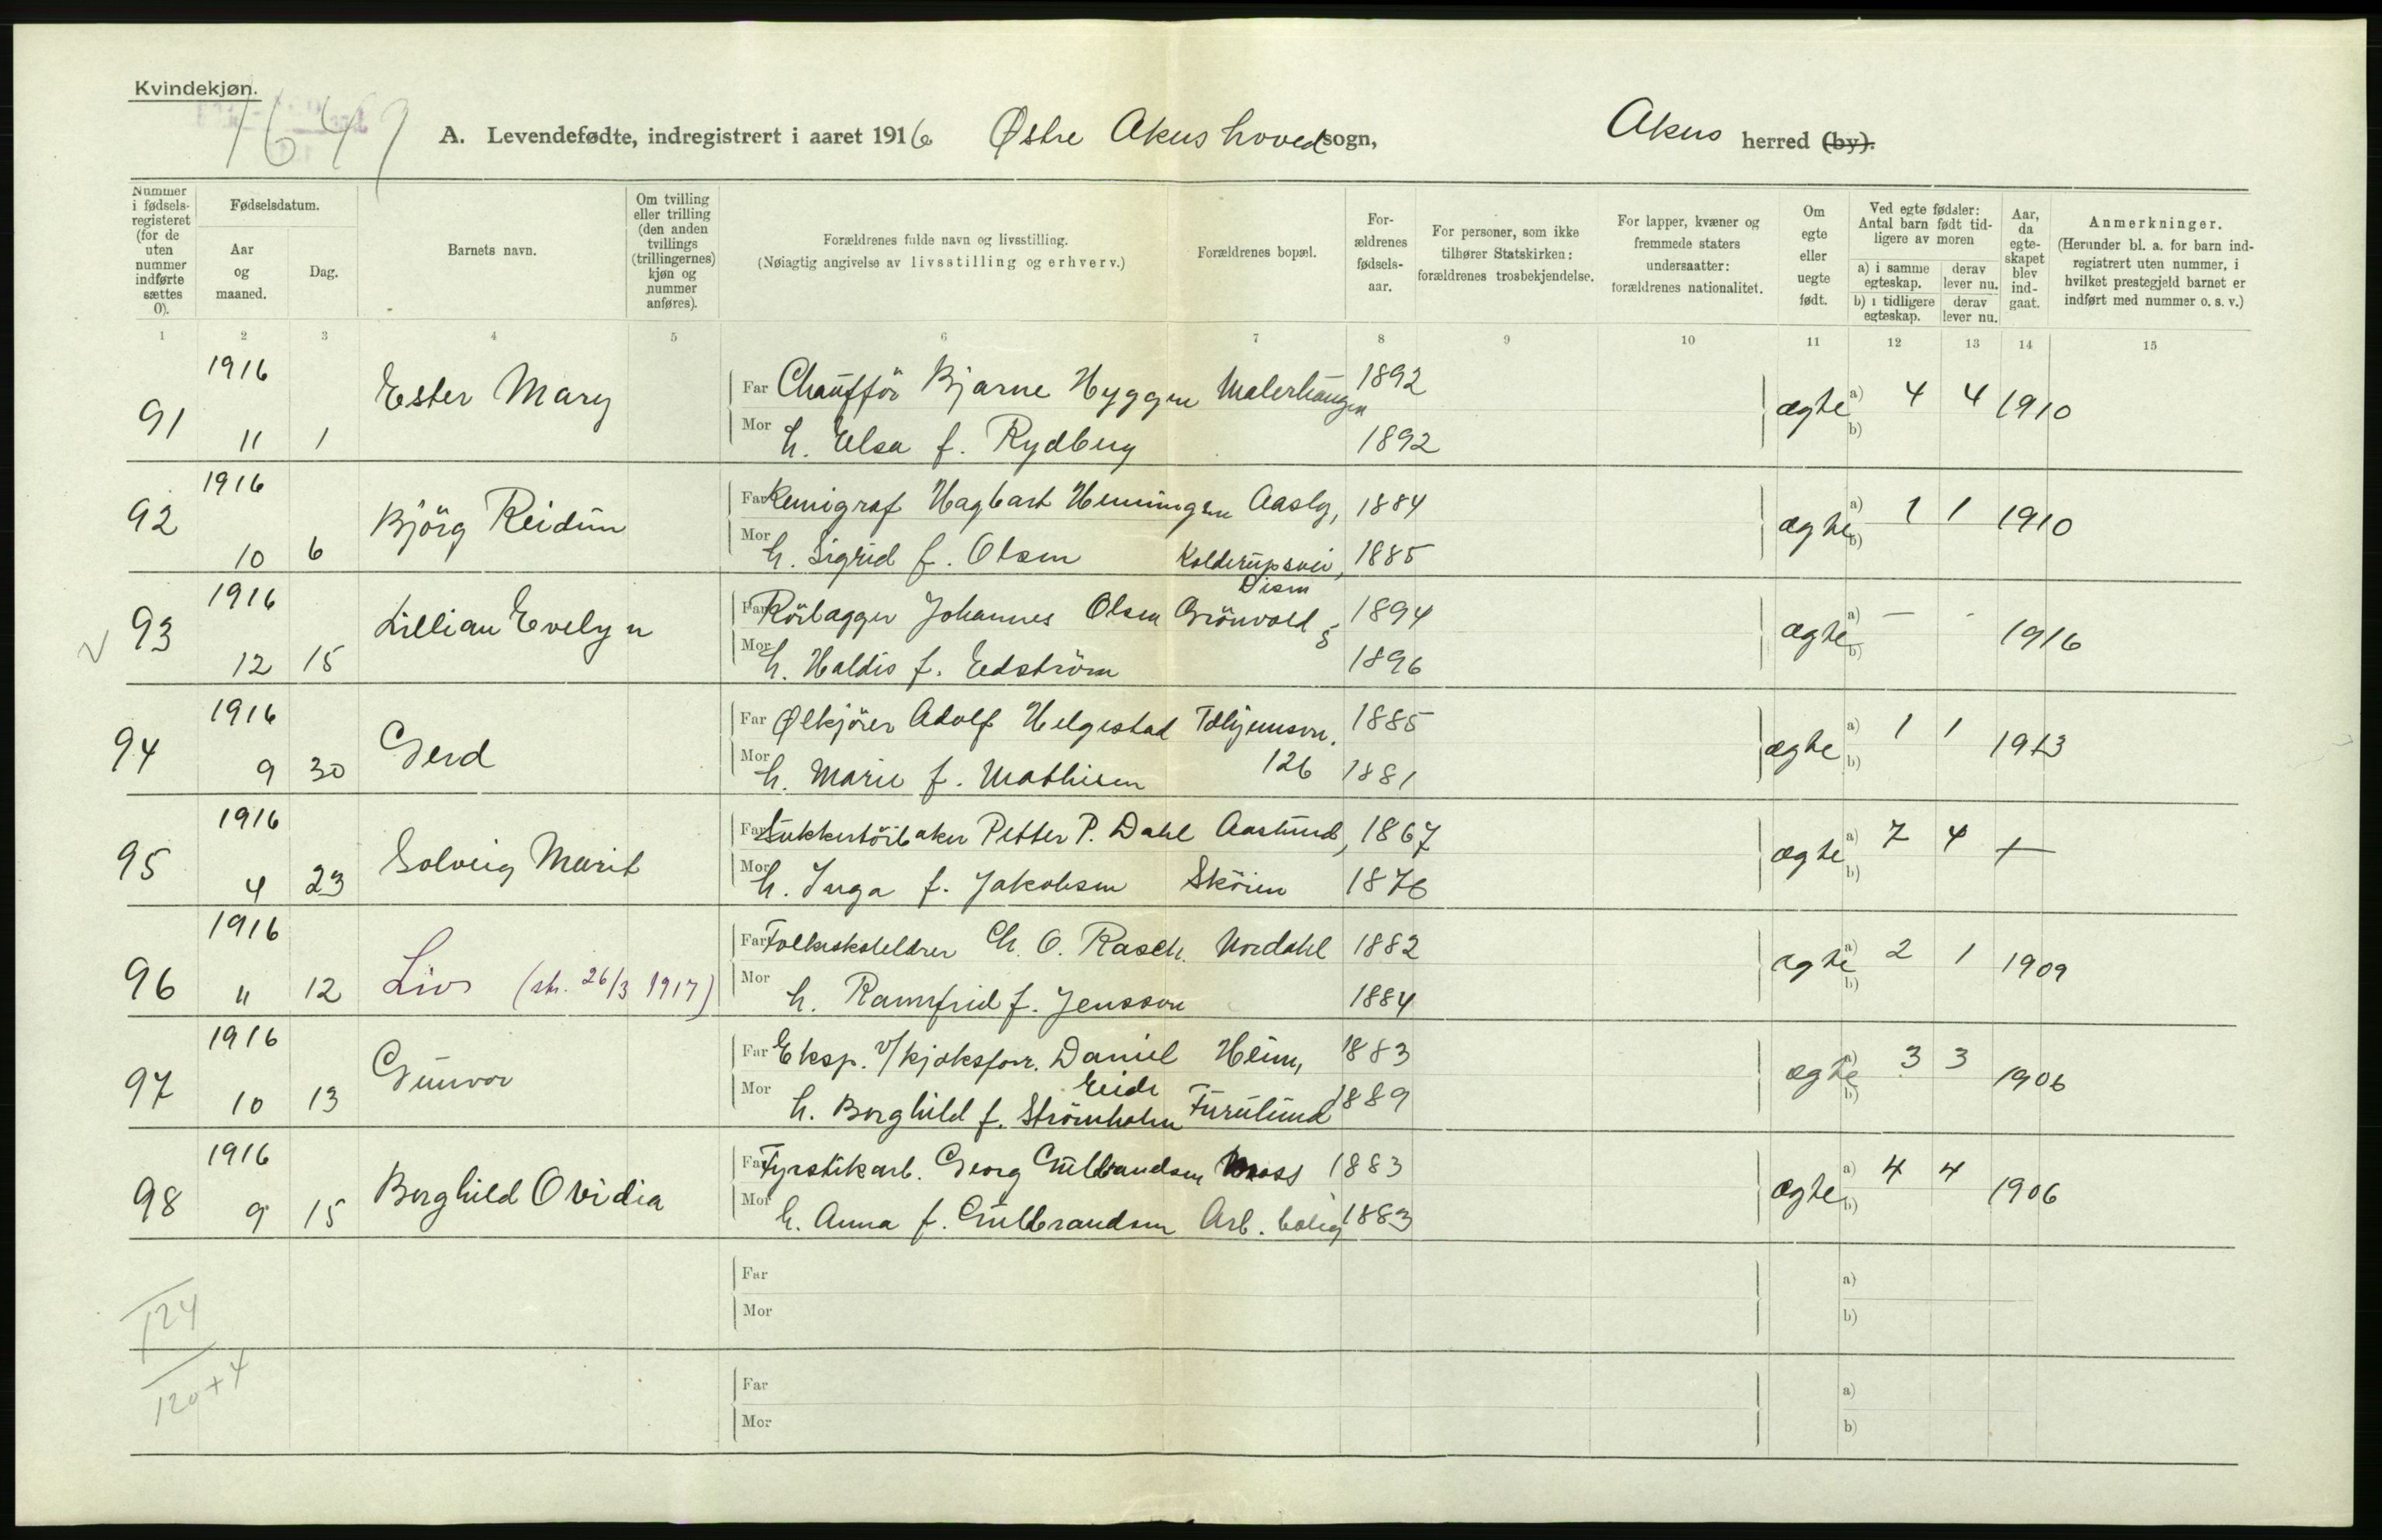 Kvindekjøn.
1647
A. Levendefødte, indregistrert i aaret 1916 Østre Akers hovedsogn, Akers herred (by).
Nummer i fødsels-registeret (for de uten nummer indførte sættes 0).
Fødselsdatum.
Aar og maaned.
Dag.
Barnets navn.
Om tvilling eller trilling (den anden tvillings (trillingernes) kjøn og nummer anføres).
Forældrenes fulde navn og livsstilling.
(Nøiagtig angivelse av livsstilling og erhverv.)
Forældrenes bopæl.
For-ældrenes fødsels-aar.
For personer, som ikke tilhører Statskirken: forældrenes trosbekjendelse.
For lapper, kvæner og fremmede staters undersaatter: forældrenes nationalitet.
Om egte eller uegte født.
Ved egte fødsler: Antal barn født tid-ligere av moren
a) i samme egteskap.
derav lever nu.
b) i tidligere egteskap.
derav lever nu.
Aar, da egte-skapet blev ind-gaat.
Anmerkninger.
(Herunder bl. a. for barn ind-registrert uten nummer, i hvilket prestegjeld barnet er indført med nummer o. s. v.)
1 2 3 4 5 6 7 8 9 10 11 12 13 14 15
1916
91 11 1 Ester Mary
Far Chaufför Bjarne Hyggen Malerhaugen 1892
Mor h. Elsa f. Rydberg 1892
ægte a) 4 4 1910
b)
1916
92 10 6 Björg Reidun
Far Kemigraf Hagbart Henningsen Aasly, 1884
Mor h. Sigrid f. Olsen Kolderupsvei, 1885
ægte a) 1 1 1910
b)
1916
93 12 15 Lillian Evelyn
Far Rörlægger Johannes Olsen Grönvold 1894
Mor h. Haldis f. Edström 1896
ægte a) — - 1916
b)
1916
94 9 30 Gerd
Far Ølkjörer Adolf Helgestad 1885
Mor h. Marie f. Mathisen 126 1881
ægte a) 1 1 1913
b)
1916
95 4 23 Solveig Marit
Far Sukkertöibaker Petter P. Dahl Aaslund, 1867
Mor h. Inga f. Jakobsen Sköien 1876
ægte a) 7 4 +
b)
1916
96 " 12 Liv (str. 26/3 1917)
Far Folkeskolelærer Ch. O. Rasch. Nordahl 1882
Mor h. Rannfrid f. Jensson 1884
ægte a) 2 1 1909
b)
1916
97 10 13 Gunvor
Far Eksp. v/kjøksforr. Daniel Heim, 1883
Eide
Mor h. Borghild f. Strömholm Furulund 1889
ægte a) 3 3 1906
b)
1916
98 9 15 Borghild Ovidia
Far Fyrstikarb. Georg Gulbrandsen 1883
Mor h. Anna f. Gulbrandsen Arb. bolig 1883
ægte a) 4 4 1906
b)
124
Far a)
Mor b)
120+4
Far a)
Mor b)